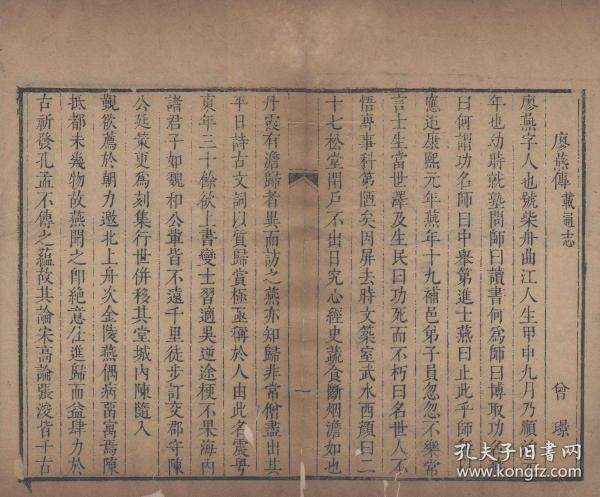 廖燕傳載通志
曾璟
廖燕字人也號柴舟曲江人生甲申九月乃順治
年也幼時就塾問師曰讀書何爲師曰博取功名
曰何謂功名師曰中舉第進士燕曰止此乎師
應迨康熙元年燕年十九補邑弟子員忽忽不樂常
言士生當世澤及生民曰功死而不朽曰名世人不
悟專事科第陋矣因屏去時文築室武水西顏曰二
十七松堂閉戶不出日究心經史蔬食斷烟澹如也
丹霞有澹歸者異而訪之燕亦知歸非常僧盡出其
平日詩古文詞以質歸賞極亟稱於人由此名震粵
東年三十餘欲上書變士習適吳逆途梗不果海內
諸君子如魏和公輩皆不遠千里徒步訂交郡守陳
公廷策更爲刻集行世併移其堂城內陳隨入
覲欲薦於朝力邀北上舟次金陵燕偶病留寓焉陳
抵都未幾物故燕聞之卽絕意仕進歸而益肆力於
古斬發孔孟不傳之蘊故其論宋高論張浚皆千古
一
孔夫子旧书网
www.kongfz.com